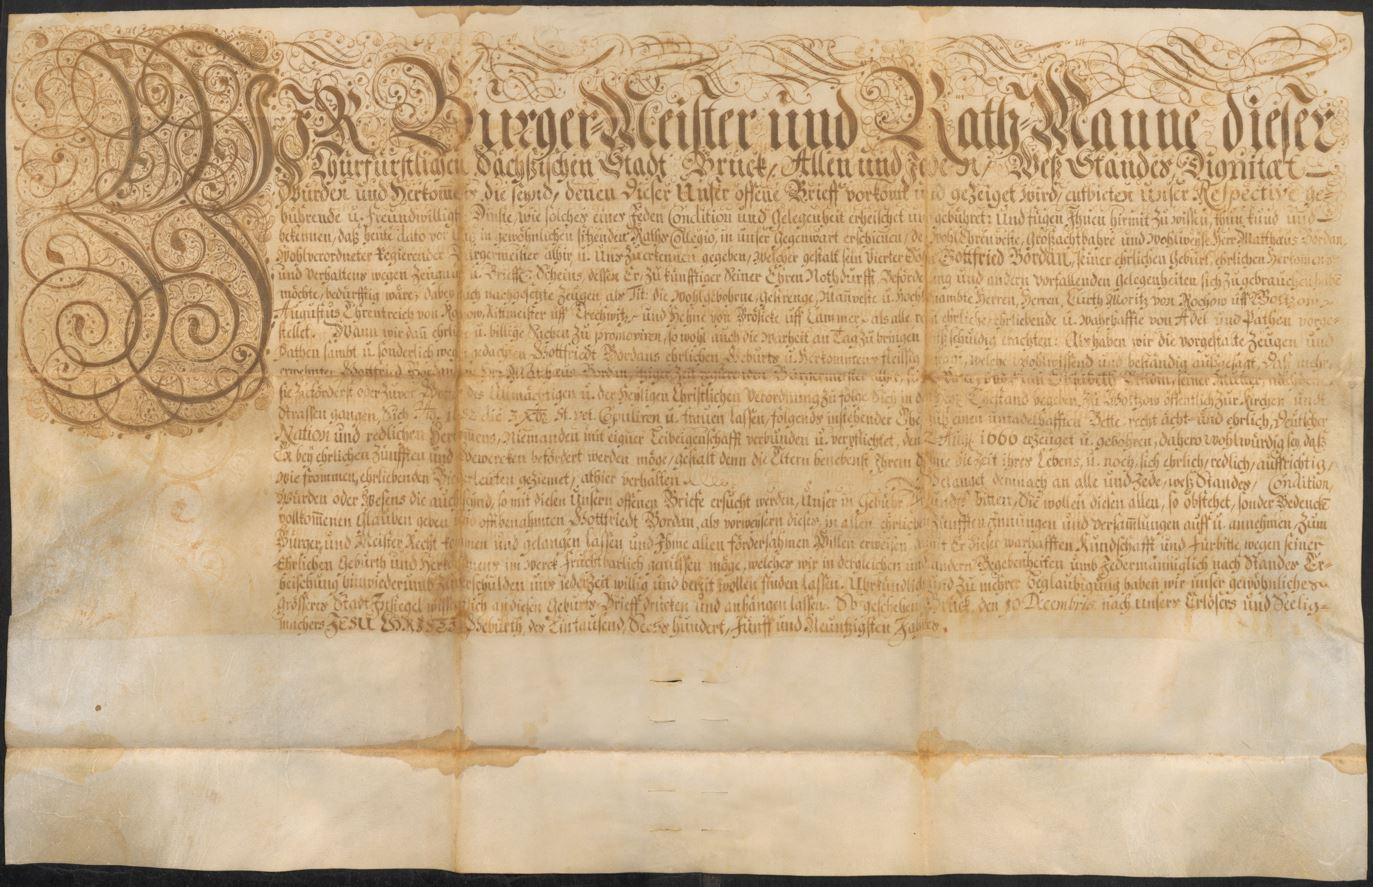 WIR Burger-Meister und Rath-Manne dieser
Churfürstlichen Sächsischen Stadt Brück, Allen und Jeden, Weß Standes, Dignität
Würden und Herkomens die seynd, denen dieser Unser offene Brieff vorkomt und gezeiget wird, entbieten Unser Respective ge-
bührende u. freundwilligst Dinste, wie solches eines jeden Condition und Gelegenheit erheischet und gebühret: Und fügen Ihnen hirmit zu wissen, thun kund und
bekennen, daß heute dato vor Uns in gewöhnlichen sitzenden Raths-Collegio, in unser Gegenwart erschienen, der Wohl Ehrenveste, Großachtbahre und Wohlweyse Herr Matthæus Bordan,
Wohlverordneter Regierender Bürgermeister alhir u. Uns zu erkennen gegeben, Welcher gestalt sein Vierter Sohn Gottfried Bordan, seiner ehrlichen Geburt, ehrlichen Herkomens
und Verhaltens wegen Zeugnis u. Brieffl. Scheins dessen Er, zu künfftiger Seiner Ehren Nothdurfft Beförderung und andern vorfallenden gelegenheiten sich zugebrauchen habe
möchte, bedürfftig wäre; dabey auch nachgesetzte Zeugen als Tit: die Wohlgebohrne, Gestrenge, Manveste u. Hoch benambte Herren, Herren, Curth Moritz von Rochow uff Goltzow,
Augustus Ehrentreich von Rochow, Rittmeister uff Trechwitz, und Heyne von Brösicke uff Cammer, als alle ehrliche, ehrliebende u. Wahrhaffte von Adel und Pathen vorge-
stellet. Wann wir dan ehrliche u. billige Sachen zu promoviren, so wohl auch die Warheit an Tag zu bringen uns schuldig erachten: Als haben wir die vorgestalte Zeugen und
Pathen sambt u. sonderlich wegen gedachten Gottfriedt Bordans ehrlichen Geburts u. Herkommens fleissig welche Wohlwissend und beständig außgesagt, Daß mehr
erwehnter Gottfried Bordan
sie zuförderst oder zuvor des Allmächtigen u. der Heyligen Christlichen Verordnung zu folge Sich in den Ehestand begeben, zu Goltzow öffentlich zur Kirchen und
Strassen gangen, Sich Ao. 1652 die St. vet. Copuliren u. trauen lassen, folgends instehender Ehe auß einem untadelhafften Bette, recht ächt und ehrlich, Deutscher
Nation und redlichen Herkomens, Niemanden mit eigner Leibeigenschafft verbunden u. verpflichtet, den 2 Aug. 1660 erzeuget u. gebohren, dahero Wohlwürdig sey, daß
Er bey ehrlichen Zünfften und Gewercken befördert werden möge, gestalt denn die Eltern benebenst Ihrem Sohne die Zeit ihres Lebens, u. noch, sich ehrlich, redlich, auffrichtig,
Wie frommen, ehrliebenden Biederleuten geziemet, alhier verhalten. Gelanget demnach an alle und Jede, weß Standes, Condition,
Würden oder Wesens die auch seynd, so mit diesen Unsern offenen Briefe ersucht werden, Unser in Gebühr bitten, Sie wollen diesen allen, so obstehet, sonder Bedencken
vollkomenen Glauben geben und offtbenahmten Gottfriedt Bordan, als vorweysern dieses, in allen ehrlichen Zünfften, Innungen und Versamlungen auff u. annehmen, zum
Bürger, und Meister Recht kommen und gelangen lassen und Ihme allen fördersahmen Willen erweisen, damit Er dieser warhafften Kundschafft und Fürbitte, wegen seiner
Ehrlichen Gebürth und Herkomens im Werck fruchtbarlich genüssen möge, welches wir in dergleichen und andern Begebenheiten umb Jedermänniglich nach Standes Er-
heischung hinwiederumb zu verschulden uns jederzeit willig und bereit wollen finden lassen. Uhrkündlich und zu mehrer Beglaubigung haben wir unser gewöhnliches
grösseres Stadt Insiegel wissentlich an diesen Geburts-Brieff drücken und anhängen lassen. So geschehen Brück, den 10 Decembris nach unsers Erlösers und Seelig-
machers JESU CHRISTI Gebürth, des Eintausend, Sechs hundert, Fünff und Neuntzigsten Jahres.